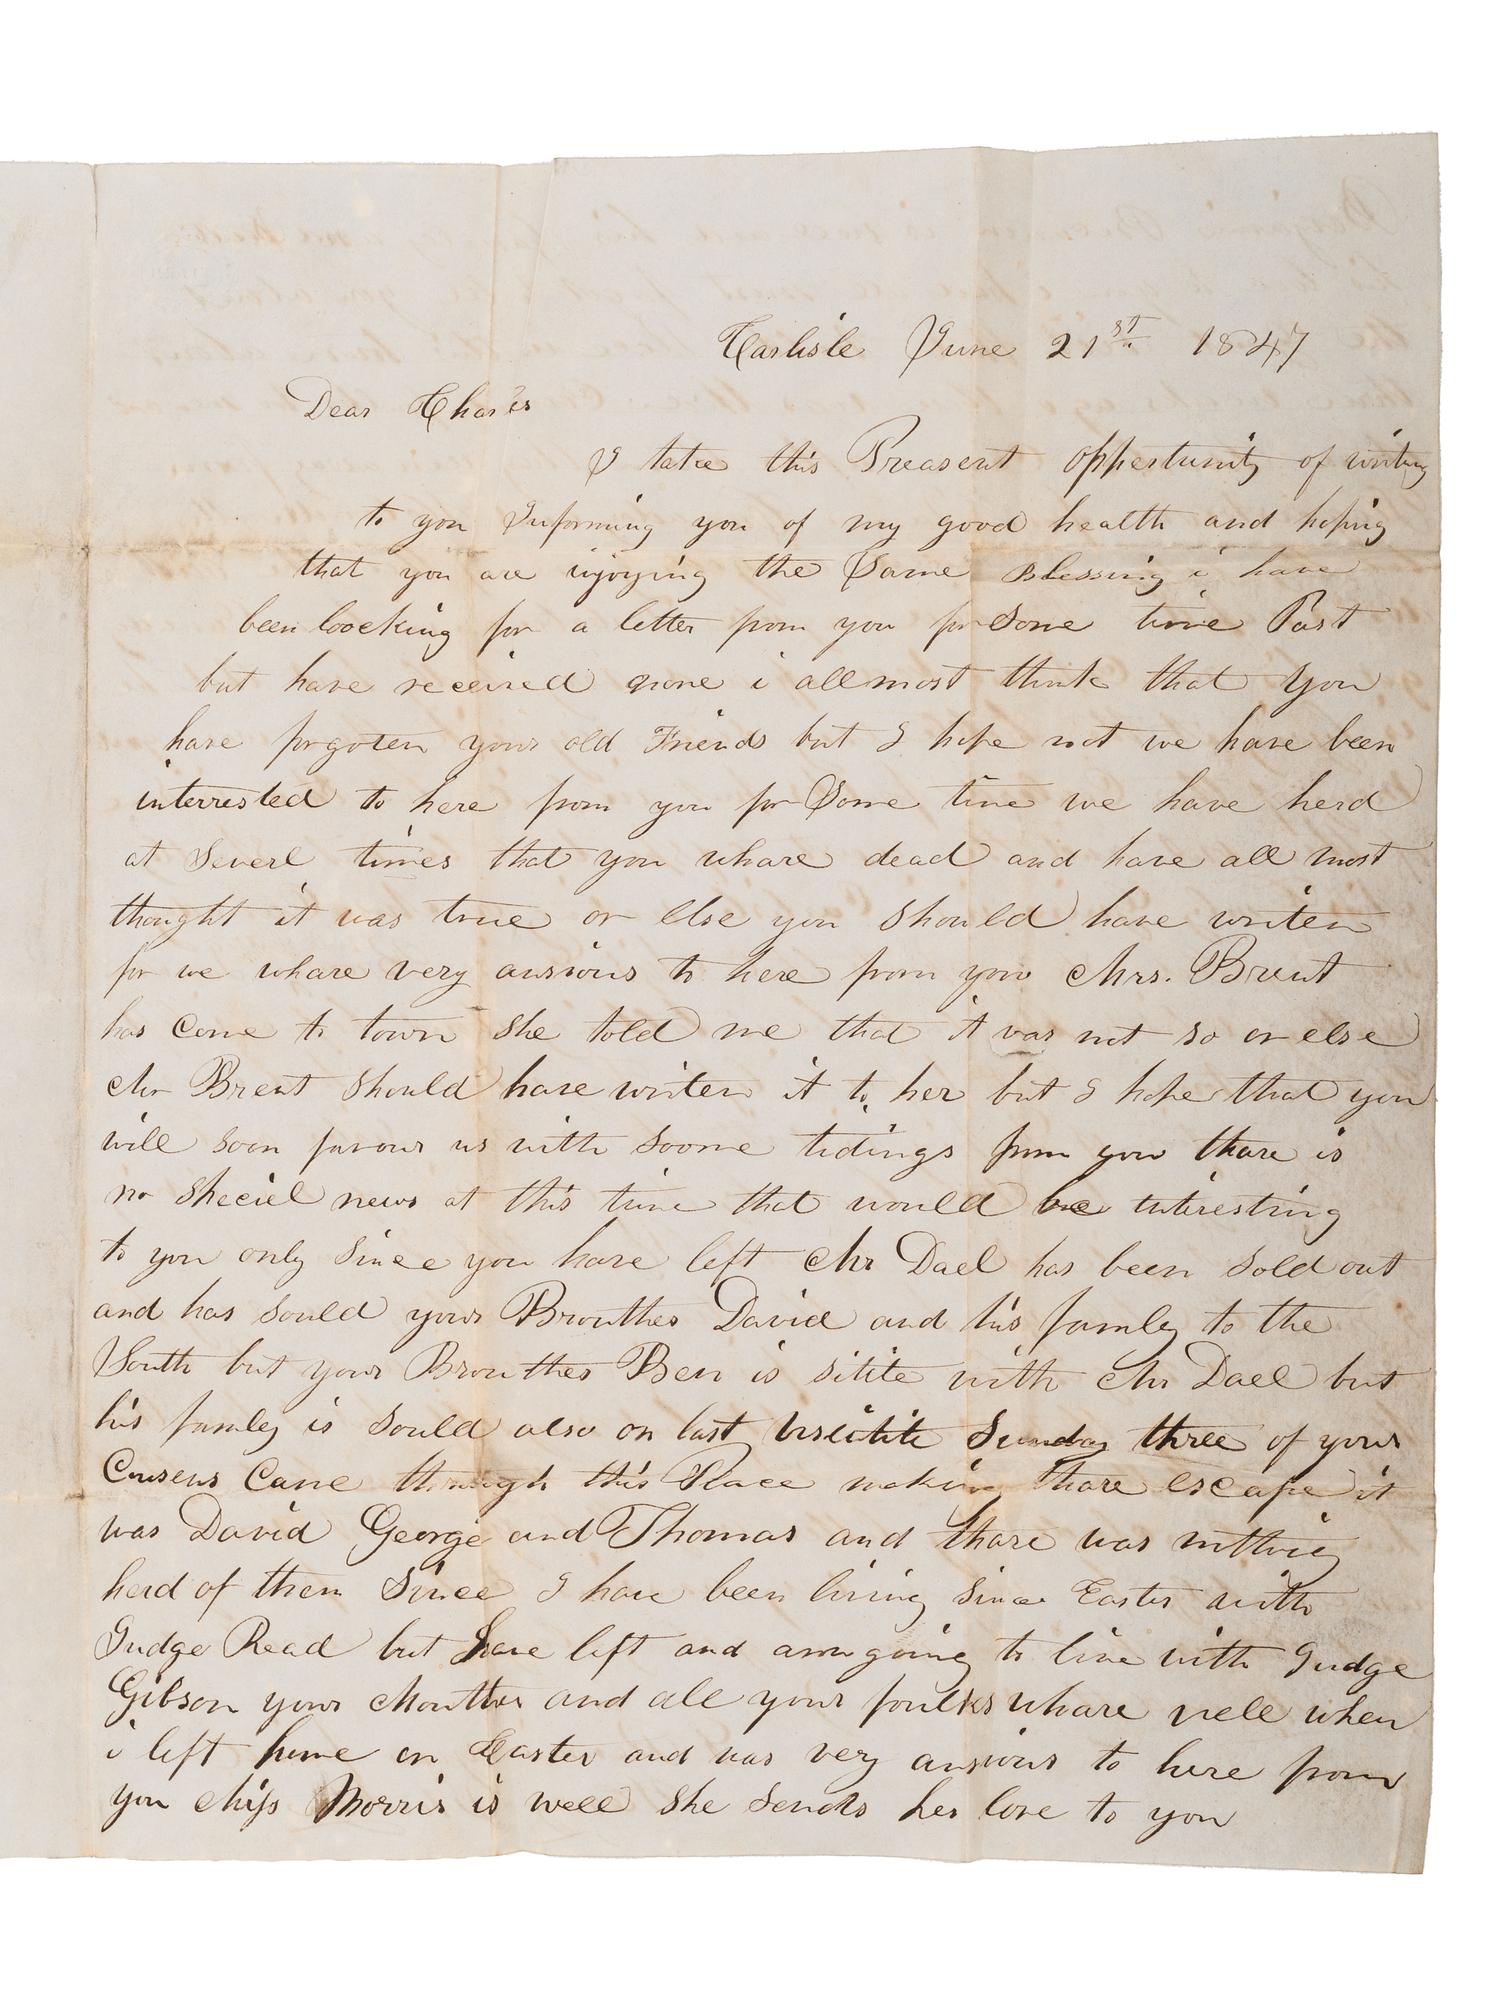 Carlisle June 21st 1847
Dear Charles
I take this Preasent oppertunity of writing
to you Informing you of my good health and hoping
that you are injoying the Same Blessing i have
been loocking for a letter from you for Some time Past
but have received none i allmost think that you
have forgoten your old Friends but I hope not we have been
interrested to here from you for Some time we have herd
at Severl times that you whare dead and have all most
thought it was true or else you should have writen
for we whare very ansious to here from you Mrs. Brent
has come to town she told me that it was not so or else
Mr Brent should have writen it to her but I hope that you
will soon favour us with soome tidings from you thare is
no speciel news at this time that would be interesting
to you only since you have left Mr Dael has been sold out
and has sould your Brouther David and his famley to the
South but your Brouther Ben is stite with Mr Dael but
his famley is sould also on last Sunday three of your
Cousens Came through this Place making thare escape it
was David George and Thomas and thare was nothing
herd of them since I have been living since Easter with
Judge Read but have left and am going to live with Judge
Gibson your Mouther and all your foulks whare well when
i left home on Easter and was very ansious to here from
you Miss Morris is well she sends her love to you